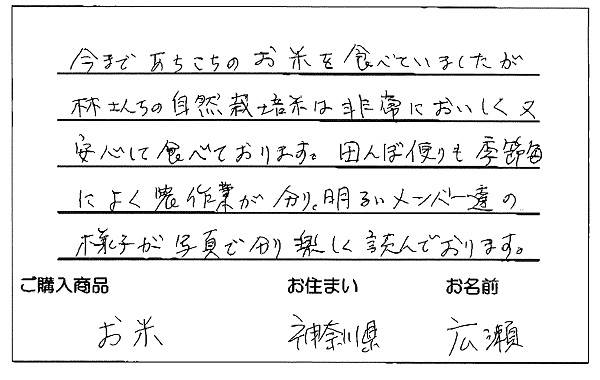 今まであちこちのお米を食べていましたが
林さんちの自然栽培米は非常においしく又
安心して食べております。田んぼ便りも季節毎
によく農作業が分り、明るいメンバー達の
様子が写真で分り楽しく読んでおります。
ご購入商品 お住まい お名前
お米 神奈川県 広瀬